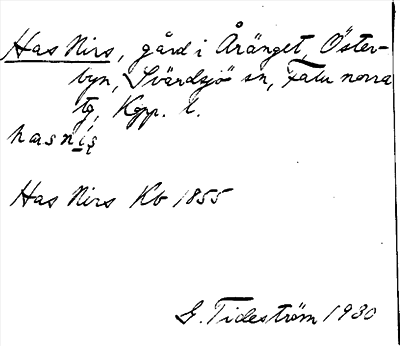 Has Nirs, gård i Åränget, Öster-
byn, Svärdsjö sn, Falu norra
tg, Kopp. l.
hasnı̣ş
Has Nirs Kb 1855
G. Tideström 1930